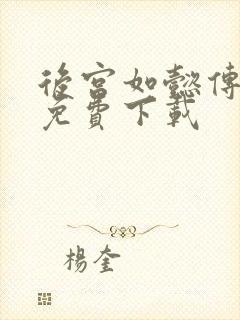 後宮如懿傳
免費下載
楊奎